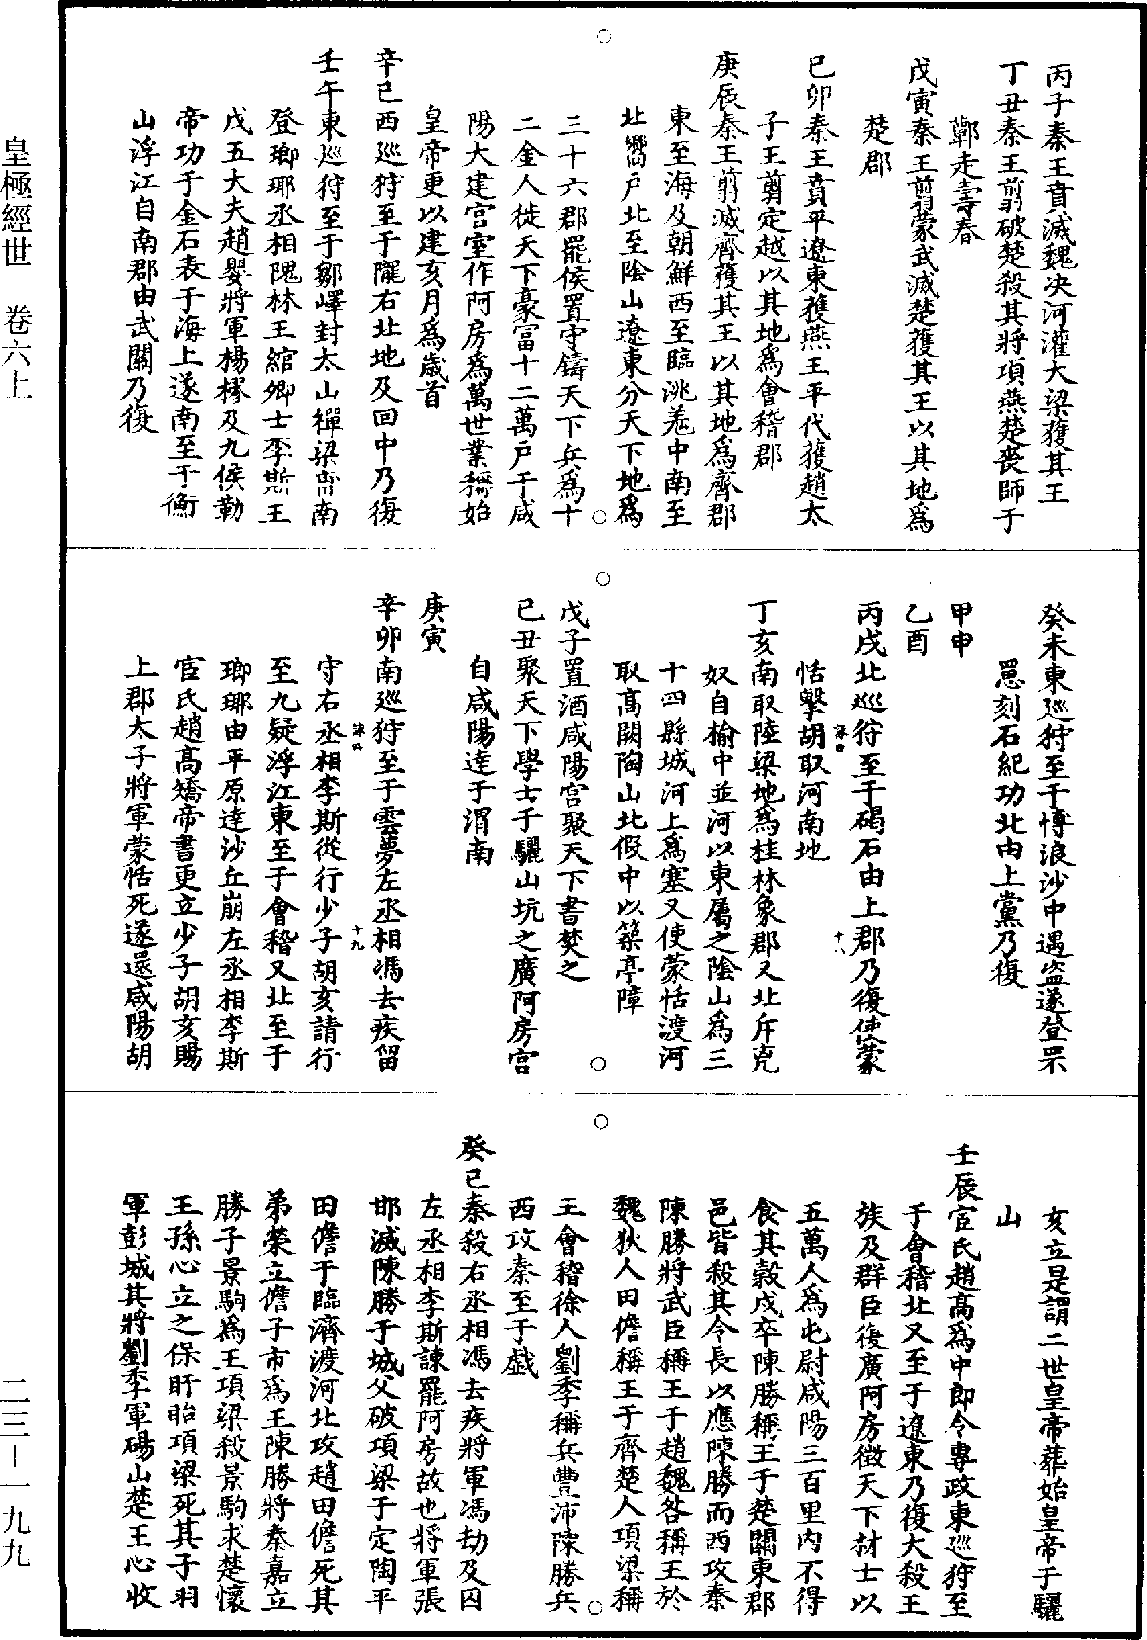 皇極經世　卷六上
二三－一九九
丙子秦王賁滅魏決河灌大梁獲其王
丁丑秦王翦破楚殺其將項燕楚喪師于
鄿走壽春
戊寅秦王翦蒙武滅楚獲其王以其地爲
楚郡
己卯秦王賁平遼東獲燕王平代獲趙太
子王翦定越以其地爲會稽郡
庚辰秦王翦滅齊獲其王以其地爲齊郡
東至海及朝鮮西至臨洮羗中南至
北嚮戸北至陰山遼東分天下地爲
三十六郡罷侯置守鑄天下兵爲十
二金人徙天下豪富十二萬戸于咸
陽大建宫室作阿房爲萬世業稱始
皇帝更以建亥月爲歲首
辛巳西巡狩至于隴右北地及回中乃復
壬午東巡狩至于鄒嶧封太山禪梁甫南
登瑯琊丞相隗林王綰卿士李斯王
戊五大夫趙嬰將軍楊樛及九侯勒
帝功于金石表于海上遂南至于衡
山浮江自南郡由武關乃復
癸未東巡狩至于博浪沙中遇盗遂登罘
罳刻石紀功北由上黨乃復
甲申
乙酉
丙戌北巡狩至于碣石由上郡乃復使蒙
恬擊胡取河南地
丁亥南取陸梁地爲桂林象郡又北斥克
奴自榆中並河以東屬之陰山爲三
十四縣城河上爲塞又使蒙恬渡河
取高闕陶山北假中以築亭障
戊子置酒咸陽宫聚天下書焚之
己丑聚天下學士于驪山坑之廣阿房宫
自咸陽達于渭南
庚寅
辛卯南巡狩至于雲夢左丞相馮去疾留
守右丞相李斯從行少子胡亥請行
至九疑浮江東至于會稽又北至于
瑯琊由平原達沙丘崩左丞相李斯
宦氏趙高矯帝書更立少子胡亥賜
上郡太子將軍蒙恬死遂還咸陽胡
亥立是謂二世皇帝葬始皇帝于驪
山
壬辰宦氏趙高爲中郎令專政東巡狩至
于會稽北又至于遼東乃復大殺王
族及群臣復廣阿房徵天下材士以
五萬人爲屯尉咸陽三百里内不得
食其穀戍卒陳勝稱王于楚關東郡
邑皆殺其令長以應陳勝而西攻秦
陳勝將武臣稱王于趙魏咎稱王於
魏狄人田儋稱王于齊楚人項梁稱
王會稽徐人劉季稱兵豐沛陳勝兵
西攻秦至于戲
癸巳秦殺右丞相馮去疾將軍馮劫及囚
左丞相李斯諫罷阿房故也將軍張
邯滅陳勝于城父破項梁于定陶平
田儋于臨濟渡河北攻趙田儋死其
弟榮立儋子市爲王陳勝將秦嘉立
勝子景駒爲王項梁殺景駒求楚懷
王孫心立之保盱眙項梁死其子羽
軍彭城其將劉季軍碭山楚王心收